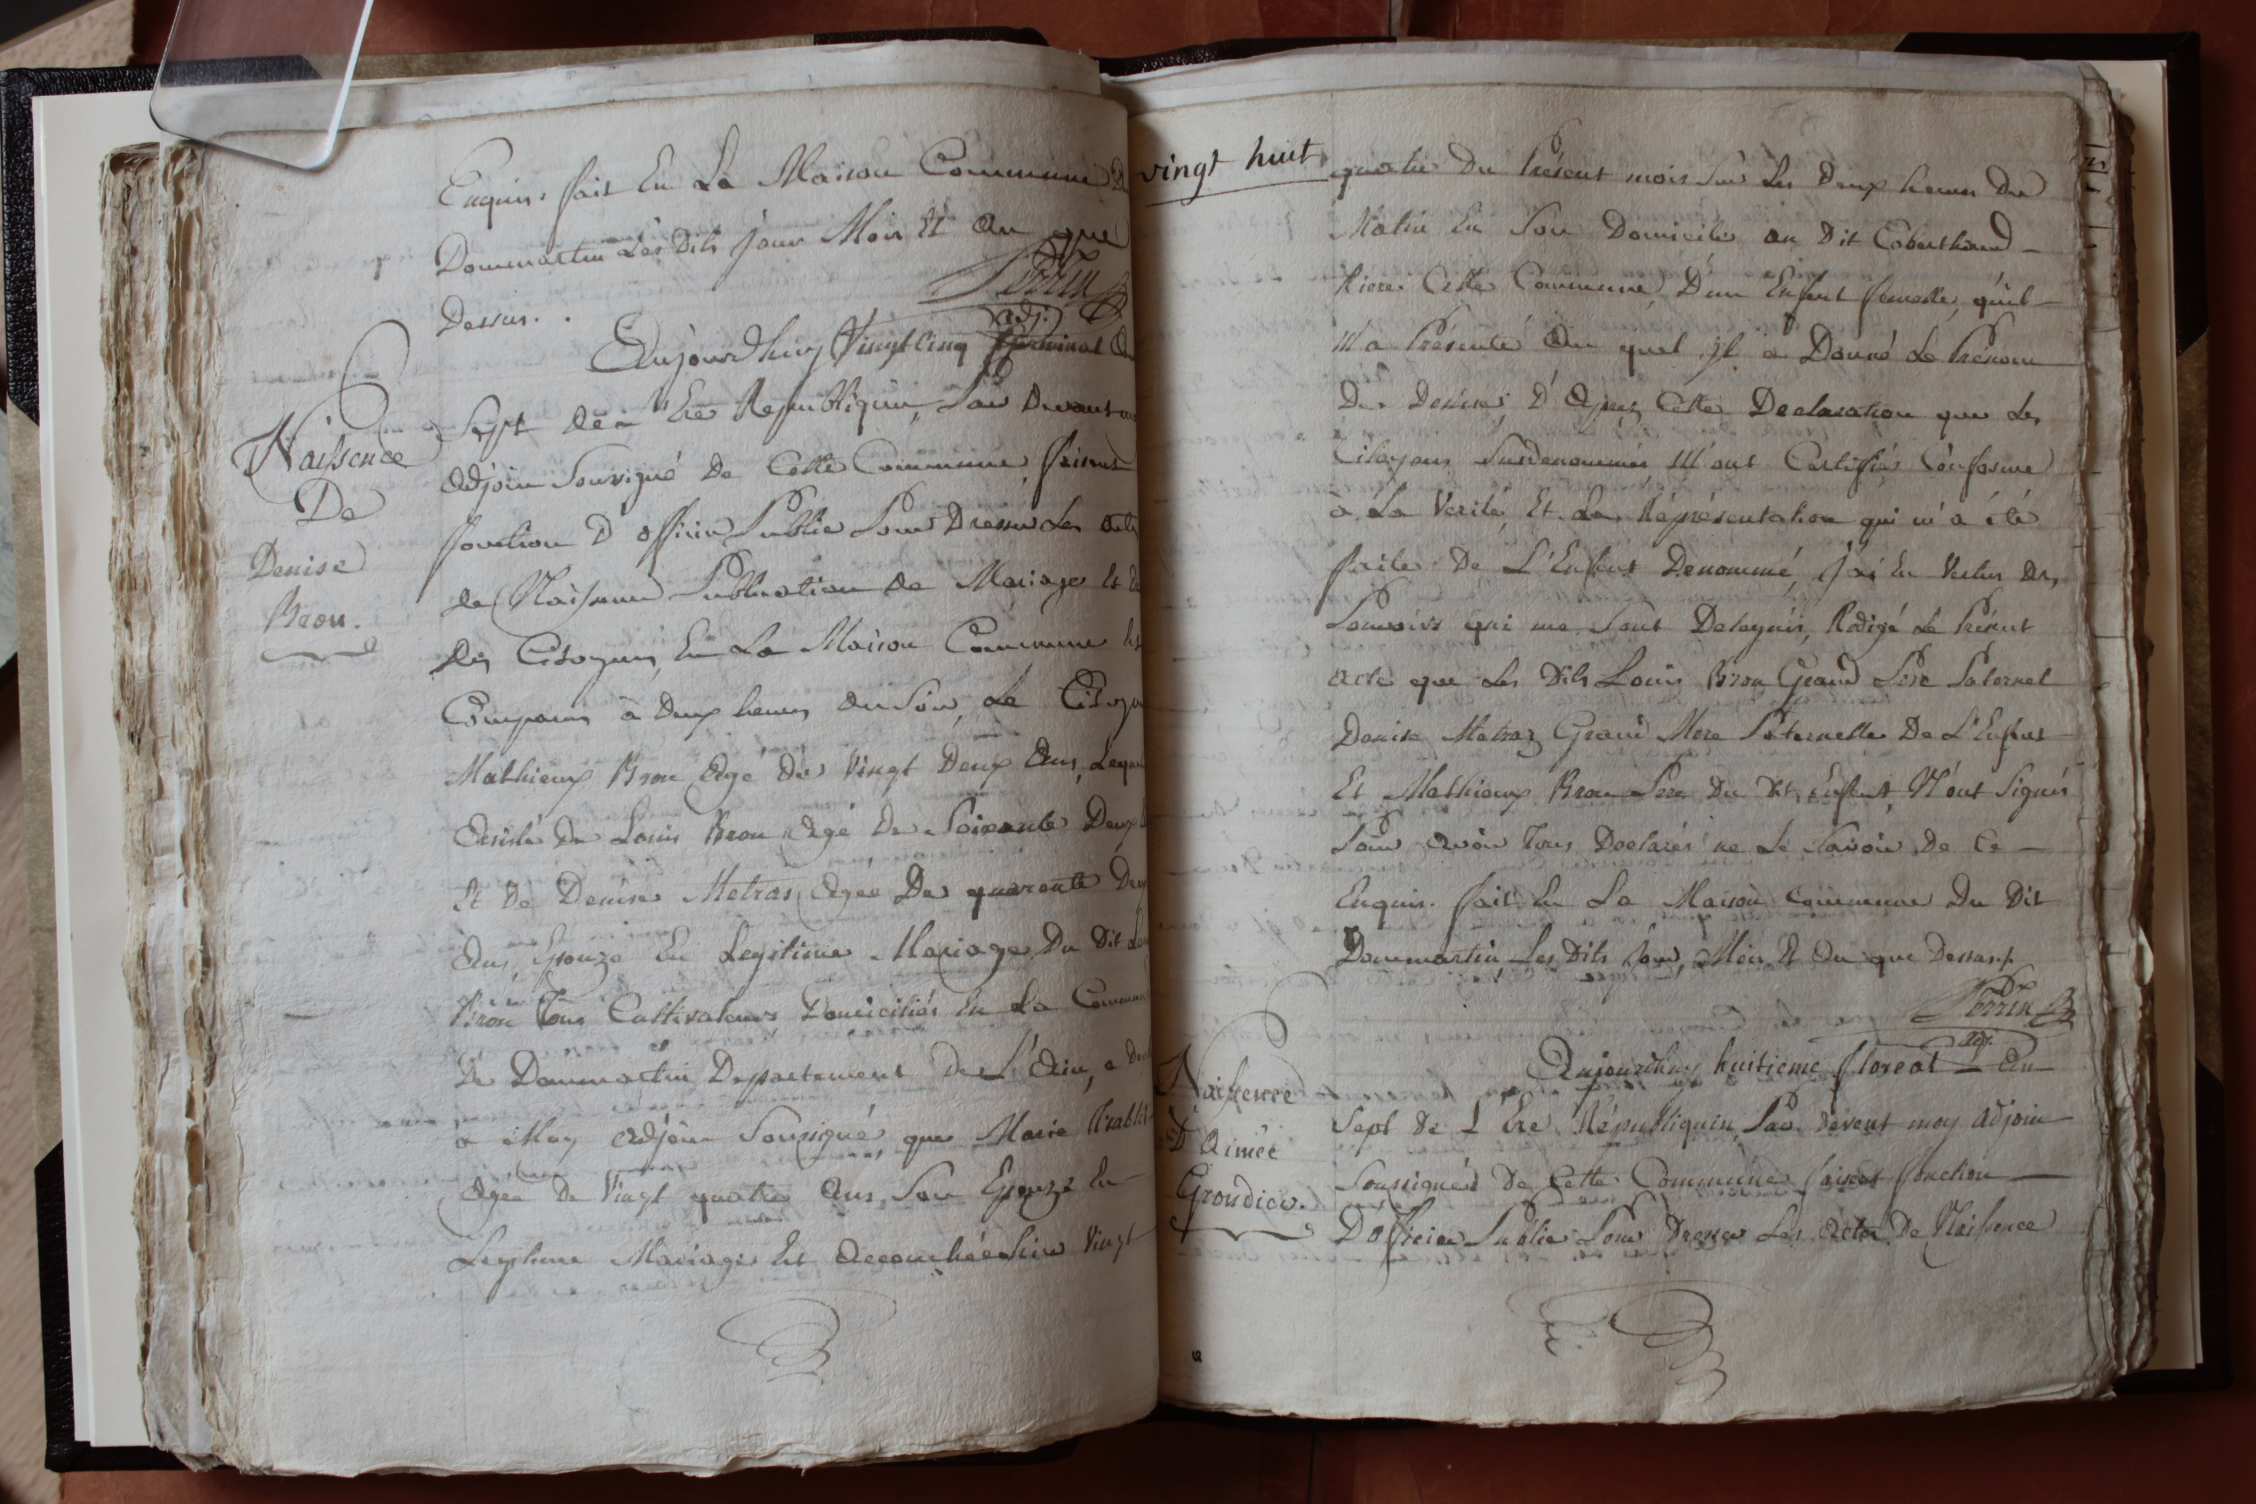 Enquis. fait En La Maison Commune De
Dommartin Les Dits jour Mois Et An que
Dessus. .
Perrin
adj.
Naissence
De
Denise
Bron.
Aujourdhuy Vingt Cinq Germinal An
Sept de L'Ere Republiquin, Par Devant moy
Adjoin Sousigné De Cette Commune, faisant
fonction D'officier Public Pour Dresser Les actes
de Naissence Publication de Mariage Et
des Citoyens, En La Maison Commune Est
Comparus à deux heures du Soir, Le Citoyen
Mathieux Bron Agé de Vingt Deux Ans, Lequel
Assisté de Louis Bron agé De Soixante Deux
Et De Denise Metras, Agée De quarente Deux
Ans, Epouze En Legitime Mariage Du Dit Louis
Bron Tous Cultivateurs Domiciliés En La Commune
De Dommartin Departement de L'Ain, a Declaré
a Moy Adjoin Sousigné, que Marie
Agée De Vingt quatre Ans, Son Epouze En
Legitime Mariage Est Accouchée hier Vingt
vingt huit
quatre Du Présent mois Sur Les Deux heures Du
Matin En Son Domicile au Dit Coberthoud
Riere Cette Commune, D'un Enfent femelle, quil
M'a Présenté Au quel il a Donné Le Prénom
De Denise, D'Aprez Cette Declaration que Les
Citoyens Susdenommés M'ont Certifiés Conforme
à La Verité, Et La Réprésentation qui m'a été
faite De L'Enfent Denommé, J'ai En Vertus Des
Pouvoirs qui me Sont Delegués, Rédigé Le Présent
acte que Les Dits Louis Bron Grand Pere Paternel
Denise Metraz Grand Mere Paternelle De L'Enfent
Et Mathieux Bron Pere Du Dit Enfent, N'ont Signés
Pour avoir Tous Declarés ne Le Savoir De Ce
Enquis. fait En La Maison Commune Du Dit
Dommartin Les Dits Jour, Mois Et An que Dessus.
Perrin
adj.
Naissence
D'Aimée
Groudier.
Aujourdhuy huitieme floreal An
Sept De L'Ere Républiquin, Par devent moy adjoin
Sousignéd De Cette Commune faisant fonction
D'officier Public Pour Dresser Les Actes De Naissence